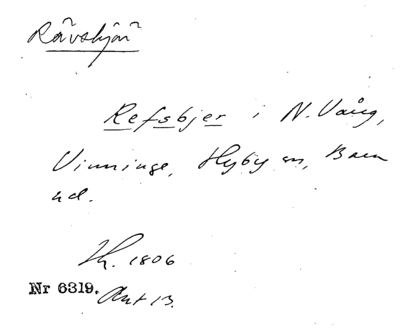 Rävsbjär
Refsbjer i N. Vång,
Vinninge, Hyby sn, Bara
hd.
Lh. 1806
Nr 6319. Akt 13.